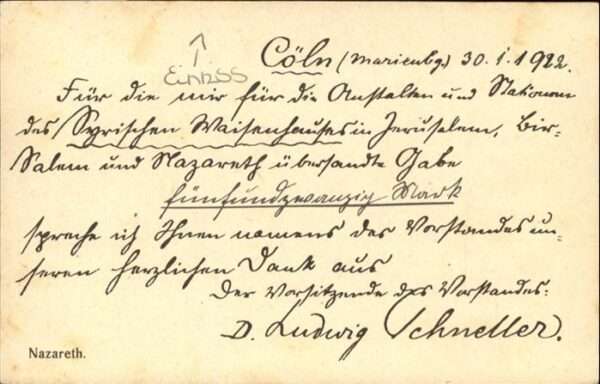 Einriss
Cöln (Marienbg.) 30.1.1922.
Für die mir für die Anstalten und Stationen
des Syrischen Waisenhauses in Jerusalem, Bir-
Salem und Nazareth übersandte Gabe
fünfundzwanzig Mark
spreche ich Ihnen namens des Vorstandes un-
seren herzlichen Dank aus
Der Vorsitzende des Vorstandes:
D. Ludwig Schneller.
Nazareth.